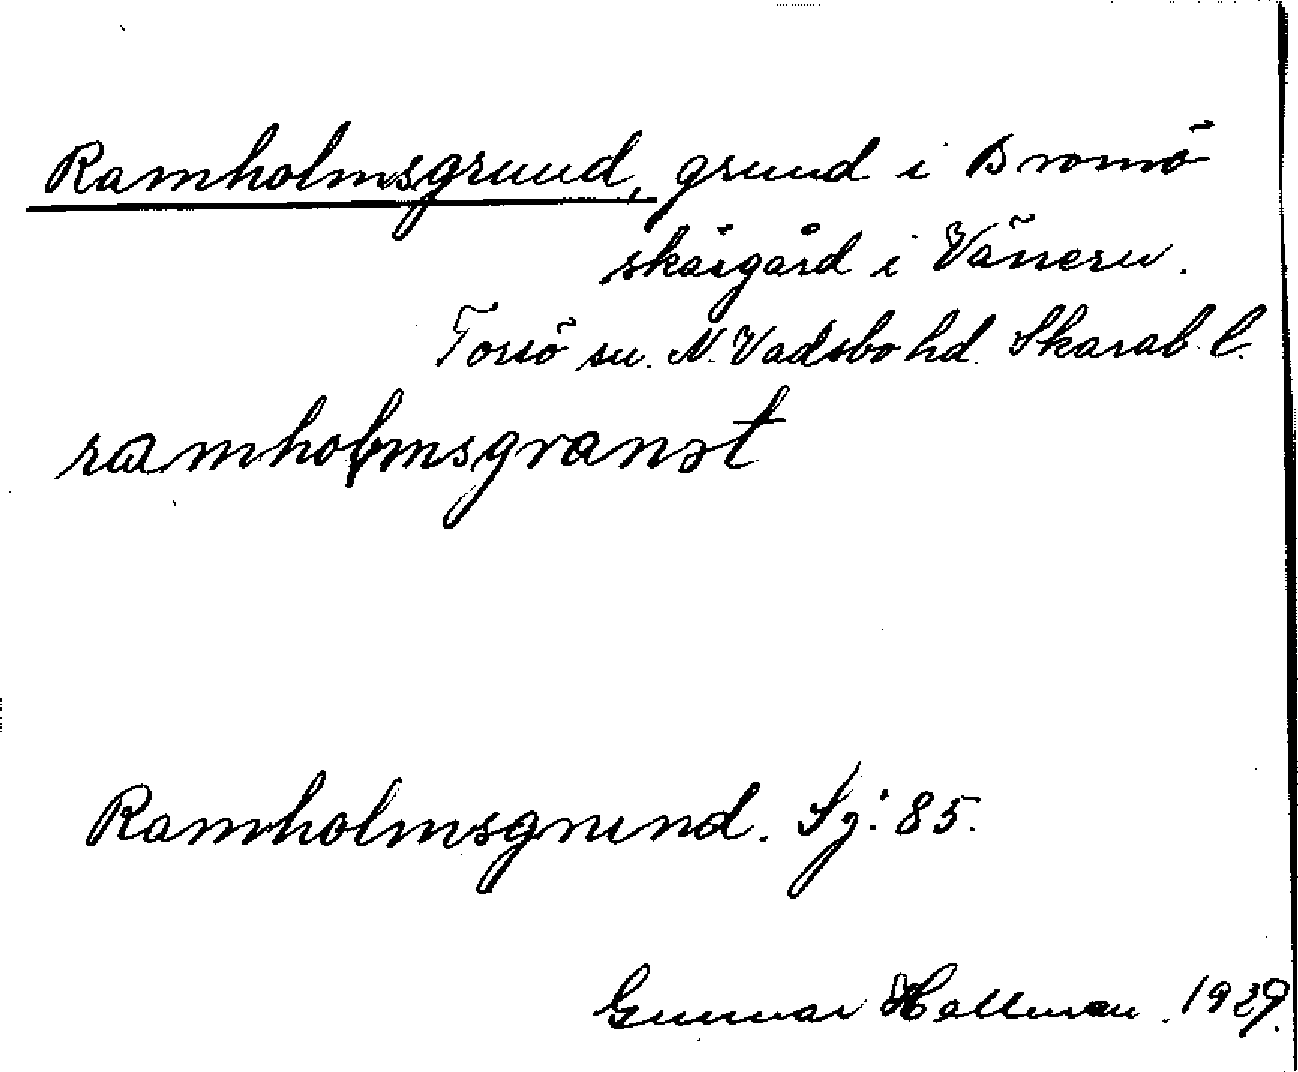 Ramholmsgrund, grund i Bromö
skärgård i Vänern.
Torsö sn. N. Vadsbo hd. Skarab. l.
ramholmsgranət
Ramholmsgrund. Sj: 85.
Gunnar Hallman. 1929.